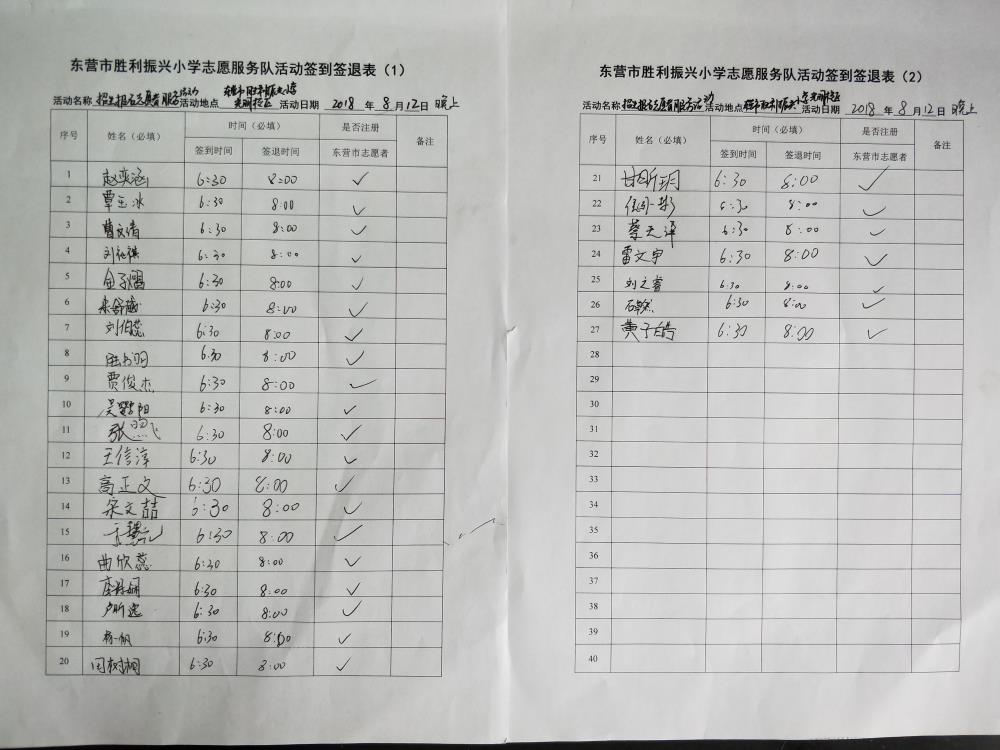 东营市胜利振兴小学志愿服务队活动签到签退表（1）
活动名称 招生报名志愿者服务活动 活动地点 东营市胜利振兴小学 活动日期 2018 年 8 月 12 日 晚上
序号 姓名（必填） 时间（必填） 是否注册 备注
签到时间 签退时间 东营市志愿者
1 赵奕涵 6:30 8:00 ✓
2 覃玉冰 6:30 8:00 ✓
3 曹文清 6:30 8:00 ✓
4 6:30 8:00 ✓
5 6:30 8:00 ✓
6 6:30 8:00 ✓
7 刘伯蕊 6:30 8:00 ✓
8 6:30 8:00 ✓
9 贾俊杰 6:30 8:00 ✓
10 6:30 8:00 ✓
11 6:30 8:00 ✓
12 王信淳 6:30 8:00 ✓
13 高正文 6:30 8:00 ✓
14 宋文喆 6:30 8:00 ✓
15 6:30 8:00 ✓
16 曲欣蕊 6:30 8:00 ✓
17 6:30 8:00 ✓
18 卢昕逸 6:30 8:00 ✓
19 6:30 8:00 ✓
20 国树桐 6:30 8:00 ✓
东营市胜利振兴小学志愿服务队活动签到签退表（2）
活动名称 招生报名志愿者服务活动 活动地点 东营市胜利振兴小学 活动日期 2018 年 8 月 12 日 晚上
序号 姓名（必填） 时间（必填） 是否注册 备注
签到时间 签退时间 东营市志愿者
21 甘昕玥 6:30 8:00 ✓
22 6:30 8:00 ✓
23 蔡天泽 6:30 8:00 ✓
24 雷文宇 6:30 8:00 ✓
25 刘之睿 6:30 8:00 ✓
26 6:30 8:00 ✓
27 黄子皓 6:30 8:00 ✓
28
29
30
31
32
33
34
35
36
37
38
39
40